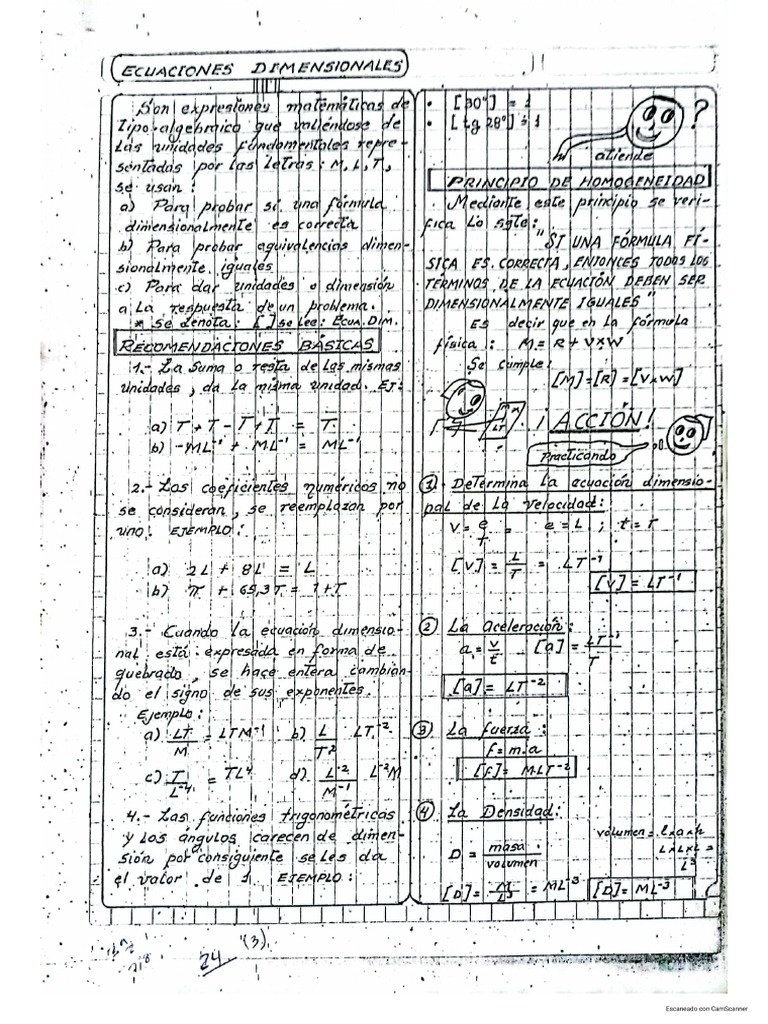 ECUACIONES DIMENSIONALES
Son expresiones matemáticas de
tipo algebraico que valiéndose de
las unidades fundamentales repre-
sentadas por las letras: M, L, T,
se usan:
a) Para probar si una fórmula
dimensionalmente es correcta
b) Para probar equivalencias dimen-
sionalmente iguales
c) Para dar unidades o dimensión
a la respuesta de un problema.
* se denota: [ ] se lee: Ecua. Dim.
RECOMENDACIONES BÁSICAS
1.- La suma o resta de las mismas
unidades, da la misma unidad. EJ:
a) T + T - T + T = T
b) -ML⁻¹ + ML⁻¹ = ML⁻¹
2.- Los coeficientes numéricos no
se consideran, se reemplazan por
uno. EJEMPLO:
a) 2L + 8L = L
b) π + 69,3T = 1+T
3.- Cuando la ecuación dimensio-
nal está expresada en forma de
quebrado, se hace entera cambian-
do el signo de sus exponentes.
Ejemplo:
a) LT/M = LTM⁻¹ b) L/T² LT⁻²
c) T/L⁻⁴ = TL⁴ d) L⁻²/M⁻¹ L⁻²M
4.- Las funciones trigonométricas
y los ángulos carecen de dimen-
sión por consiguiente se les da
el valor de 1 EJEMPLO:
• [30°] = 1
• [tg 28°] = 1
?
atiende
PRINCIPIO DE HOMOGENEIDAD
Mediante este principio se veri-
fica lo sgte:
"SI UNA FÓRMULA FÍ-
SICA ES CORRECTA, ENTONCES TODOS LOS
TERMINOS DE LA ECUACIÓN DEBEN SER
DIMENSIONALMENTE IGUALES"
Es decir que en la fórmula
física: M = R + V×W
Se cumple:
[M] = [R] = [V×W]
LT
¡ACCIÓN!
Practicando
① Determina la ecuación dimensio-
nal de la velocidad:
V = e/t = e = L ; t = T
[V] = L/T = LT⁻¹
[V] = LT⁻¹
② La Aceleración:
a = v/t [a] = LT⁻¹/T
[a] = LT⁻²
③ La fuerza:
F = m.a
[F] = MLT⁻²
④ La Densidad:
volumen = l×a×h
L×L×L =
L³
D = masa/volumen
[D] = M/L³ = ML⁻³ [D] = ML⁻³
24 (3)
Escaneado con CamScanner